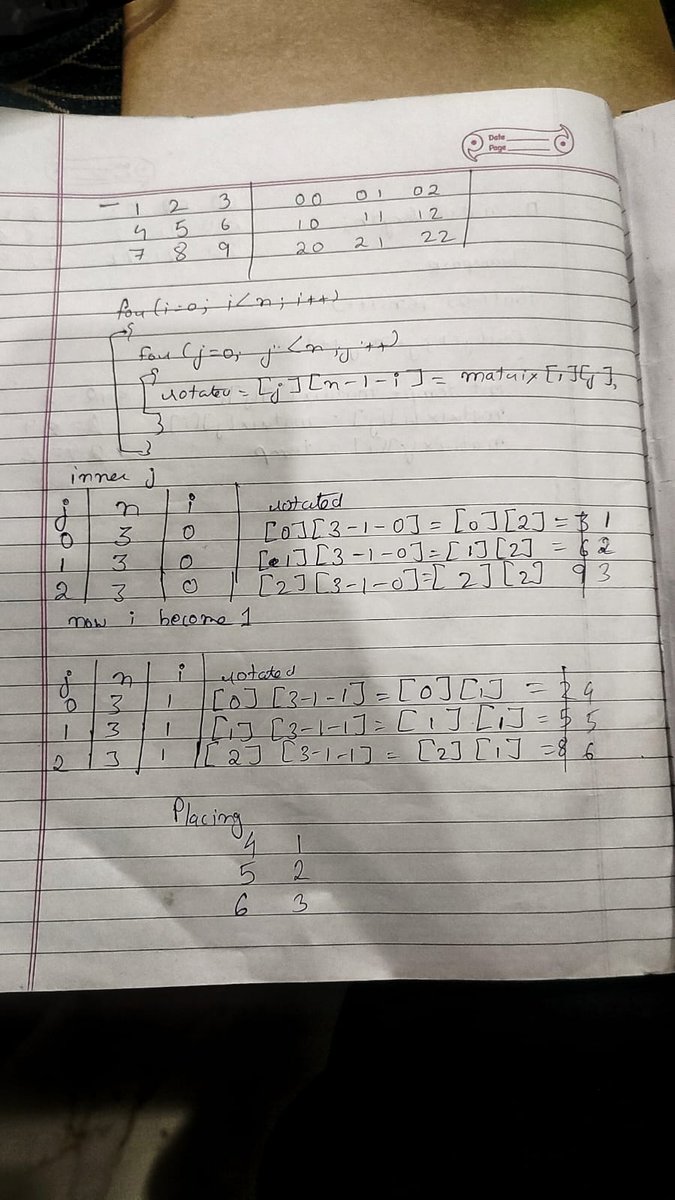 Date
Page
- 1 2 3 00 01 02
4 5 6 10 11 12
7 8 9 20 21 22
for (i=0; i<n; i++)
{
for (j=0; j<n; j++)
{
rotated = [j][n-1-i] = matrix[i][j];
}
}
inner j
j n i rotated
0 3 0 [0][3-1-0] = [0][2] = 3 1
1 3 0 [1][3-1-0] = [1][2] = 6 2
2 3 0 [2][3-1-0] = [2][2] 9 3
now i become 1
j n i rotated
0 3 1 [0][3-1-1] = [0][1] = 2 4
1 3 1 [1][3-1-1] = [1][1] = 5 5
2 3 1 [2][3-1-1] = [2][1] = 8 6
Placing
4 1
5 2
6 3